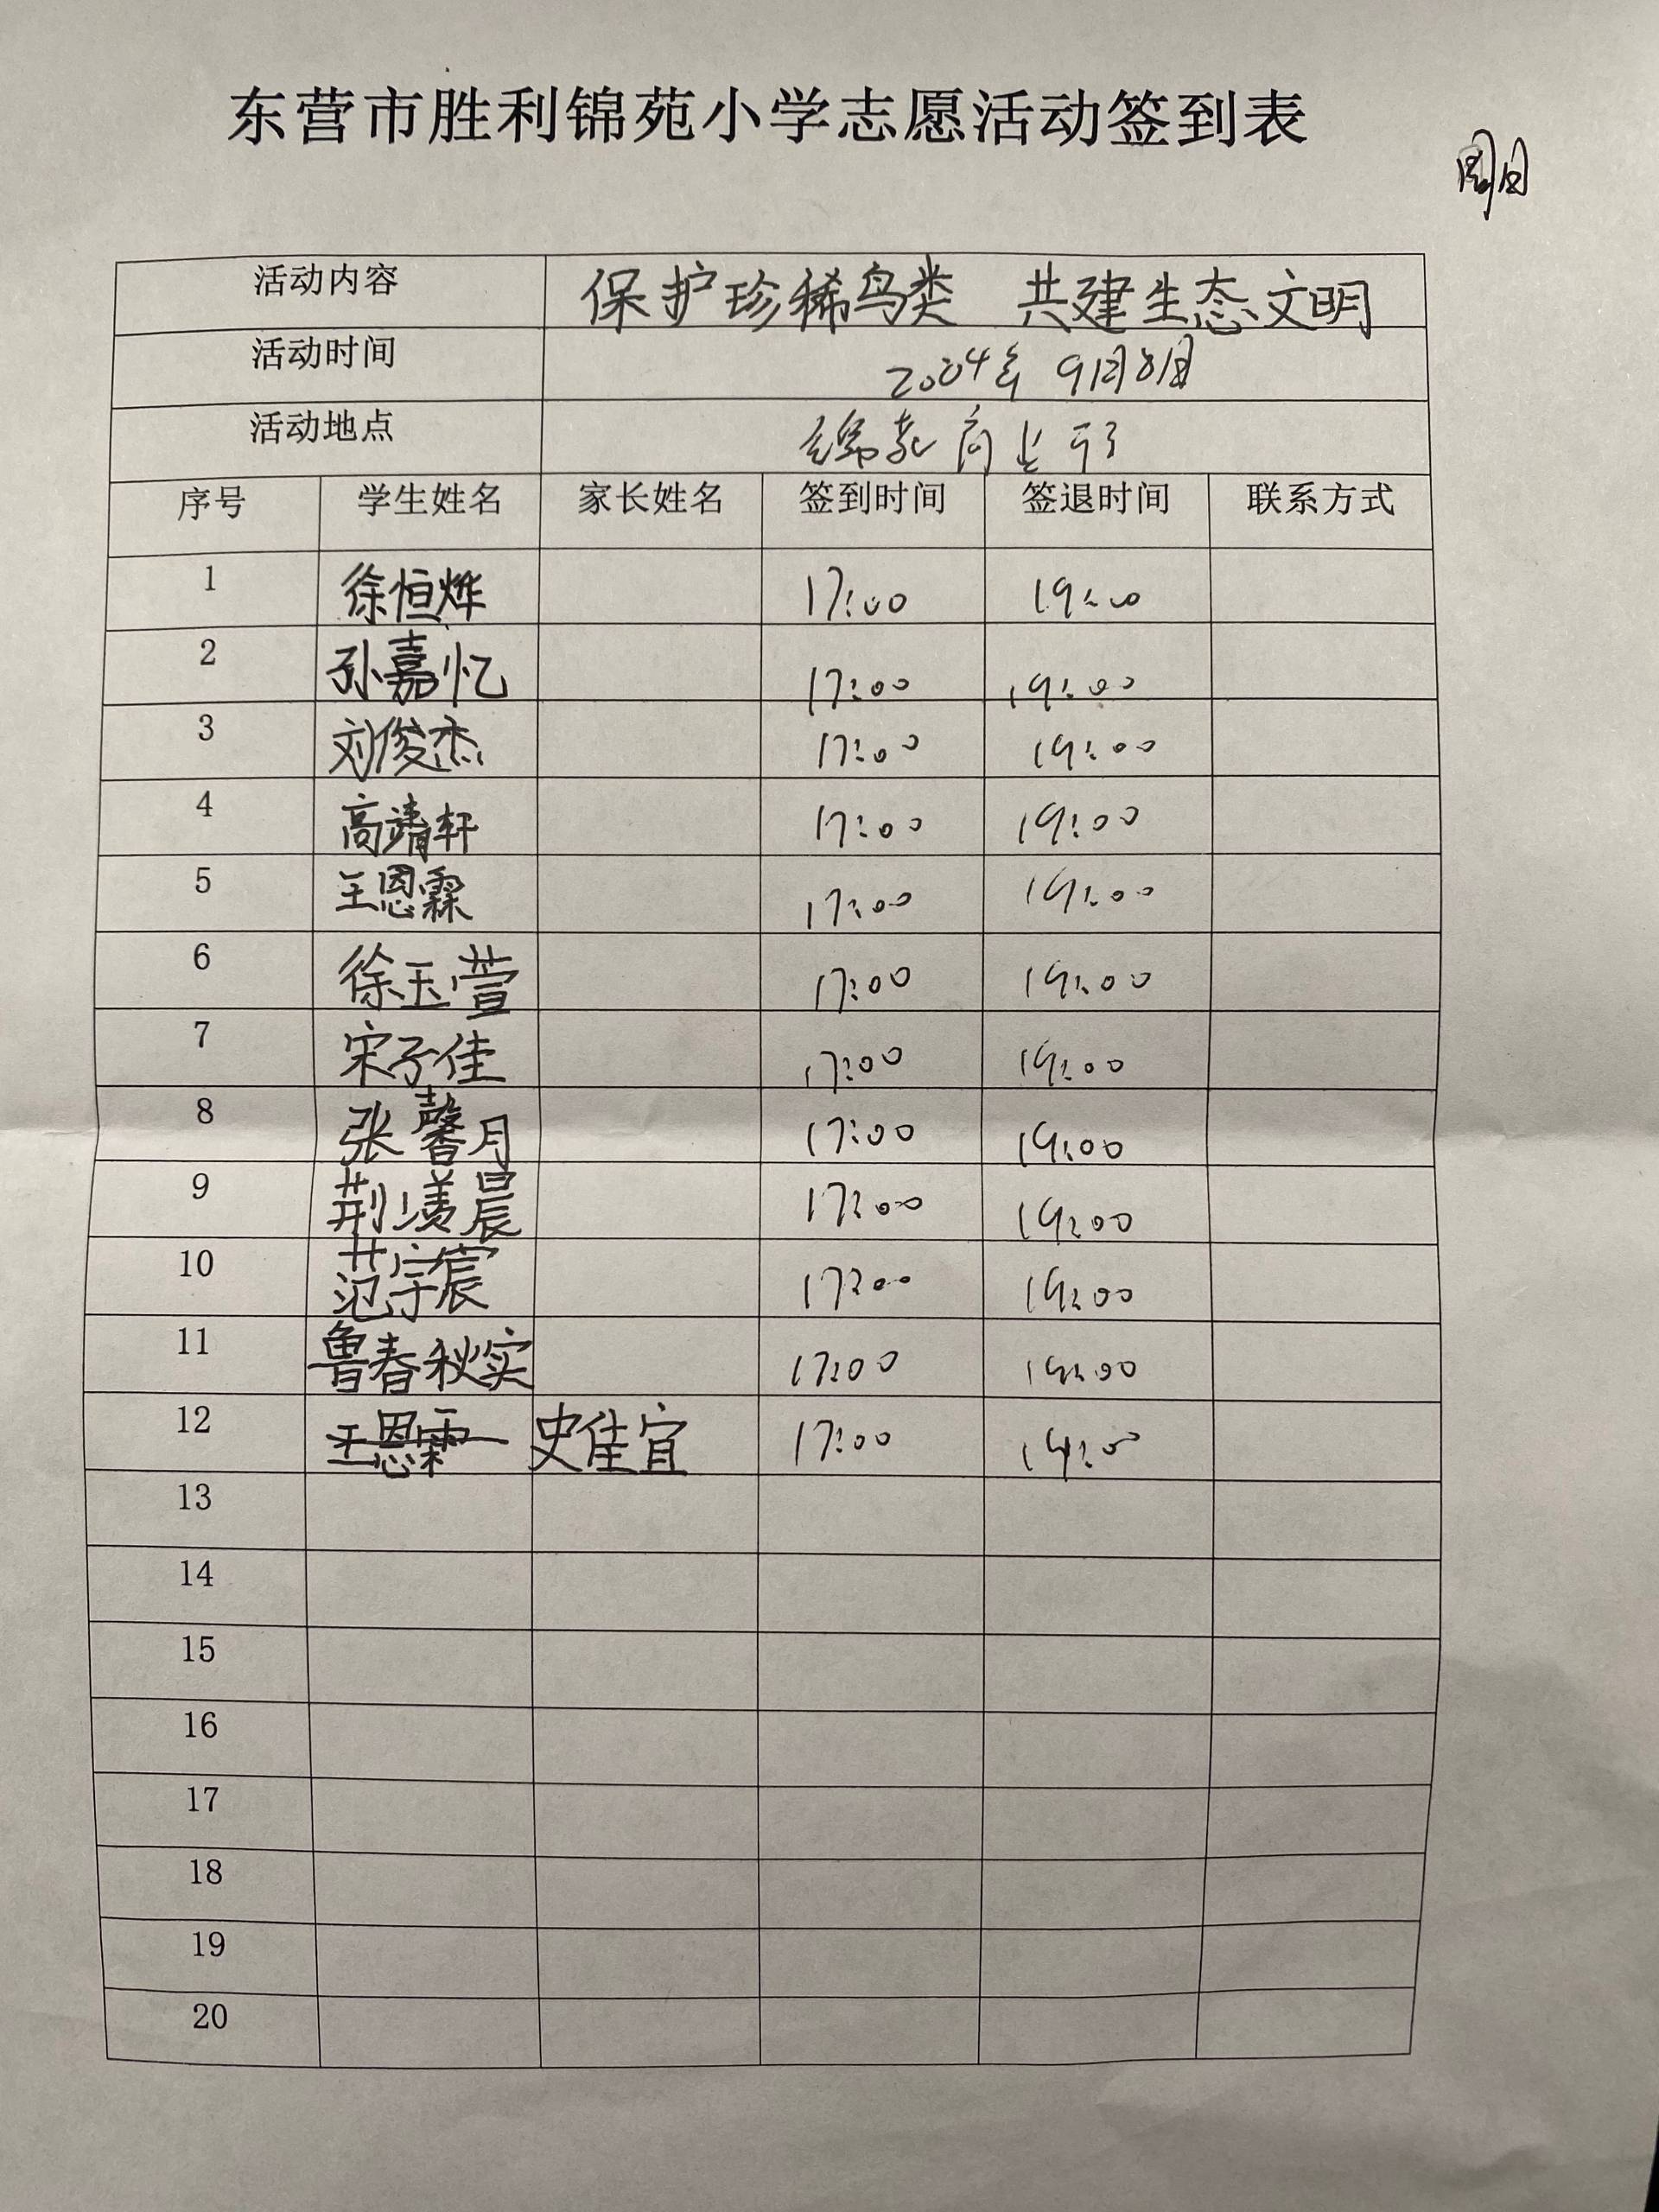 东营市胜利锦苑小学志愿活动签到表
周日
活动内容 保护珍稀鸟类 共建生态文明
活动时间 2004年 9月8日
活动地点
序号 学生姓名 家长姓名 签到时间 签退时间 联系方式
1 徐恒烨 17:00 19:00
2 孙嘉忆 17:00 19:00
3 刘俊杰 17:00 19:00
4 高靖轩 17:00 19:00
5 王恩霖 17:00 19:00
6 徐玉萱 17:00 19:00
7 宋子佳 17:00 19:00
8 张馨月 17:00 19:00
9 荆晨 17:00 19:00
10 范宇宸 17:00 19:00
11 鲁春秋实 17:00 19:00
12 王恩霖 史佳宜 17:00 19:00
13
14
15
16
17
18
19
20